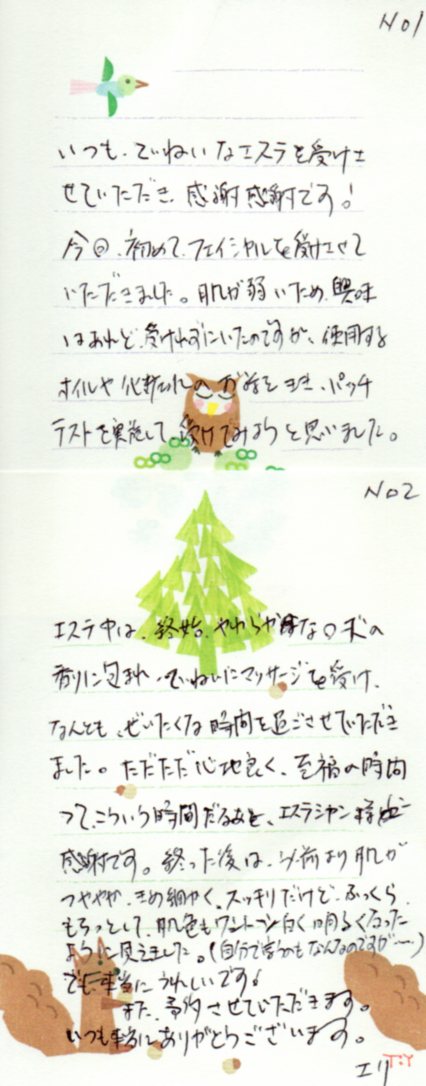 No1
いつも、ていねいなエステを受けさ
せていただき、感謝感謝です！
今回、初めて、フェイシャルを受けさせて
いただきました。肌が弱いため、興味
はあれど、受けれずにいたのですが、使用する
オイルや化粧水の お話をきき、パッチ
テストを実施して、受けてみようと思いました。
No2
エステ中は、終始、やわらかなロ一ズの
香りに包まれ、ていねいにマッサージを受け、
なんとも、ぜいたくな時間を過ごさせていただき
ました。ただただ心地良く、至福の時間
って、こういう時間だなあと、エステシャン様に
感謝です。終った後は、以前より肌が
つややか、きめ細かく、スッキリだけど、ふっくら、
もちっとして、肌色もワントーン白く明るくなった
ように見えました。(自分で言うのもなんなのですが〜)
でも本当にうれしいです！
また、予約させていただきます。
いつも本当にありがとうございます。
エリ T:Y